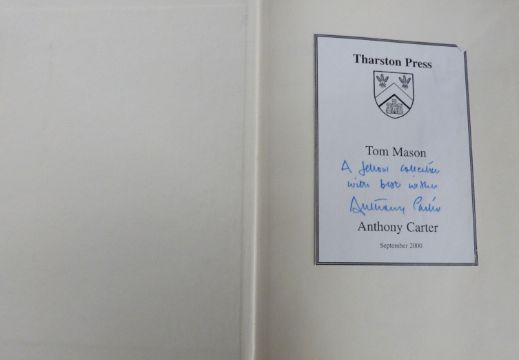 Tharston Press
Tom Mason
A fellow collector
with best wishes
Anthony Carter
Anthony Carter
September 2000